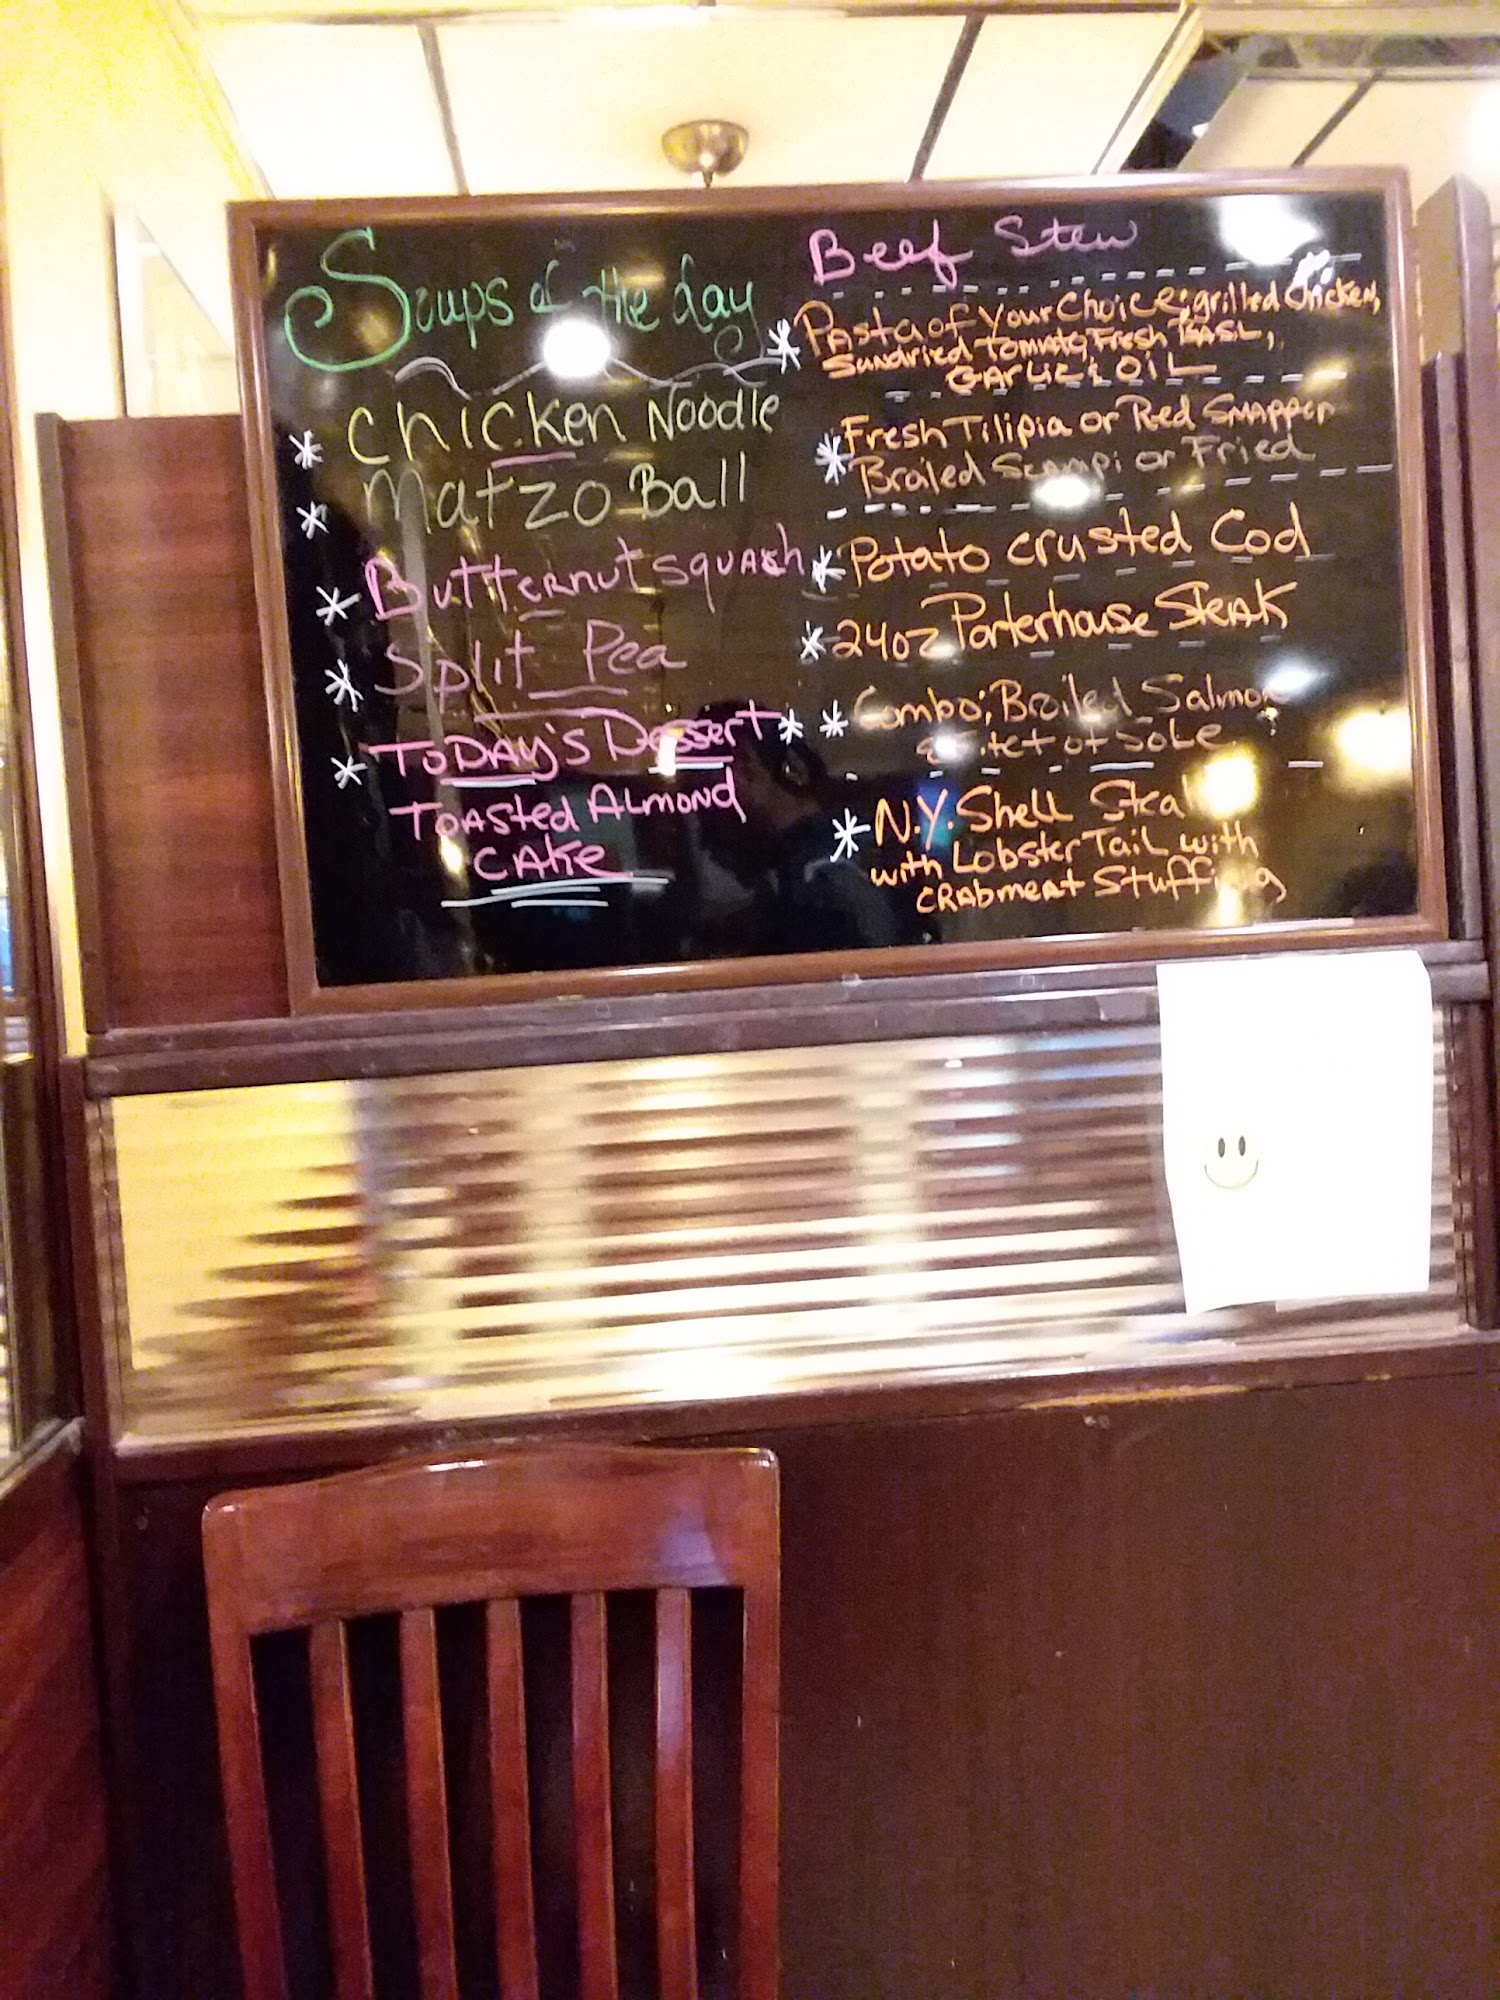 Soups of the day
Chicken Noodle
Matzo Ball
Butternut squash
Split Pea
Today's Dessert
Toasted Almond
Cake
Beef Stew
Pasta of Your Choice; grilled Chicken,
Sundried Tomato, Fresh Basil,
Garlic & Oil
Fresh Tilipia or Red Snapper
Broiled Scampi or Fried
Potato crusted Cod
24oz Porterhouse Steak
Combo; Broiled Salmon
& Filet of Sole
N.Y. Shell Steak
with Lobster Tail with
Crabmeat Stuffing